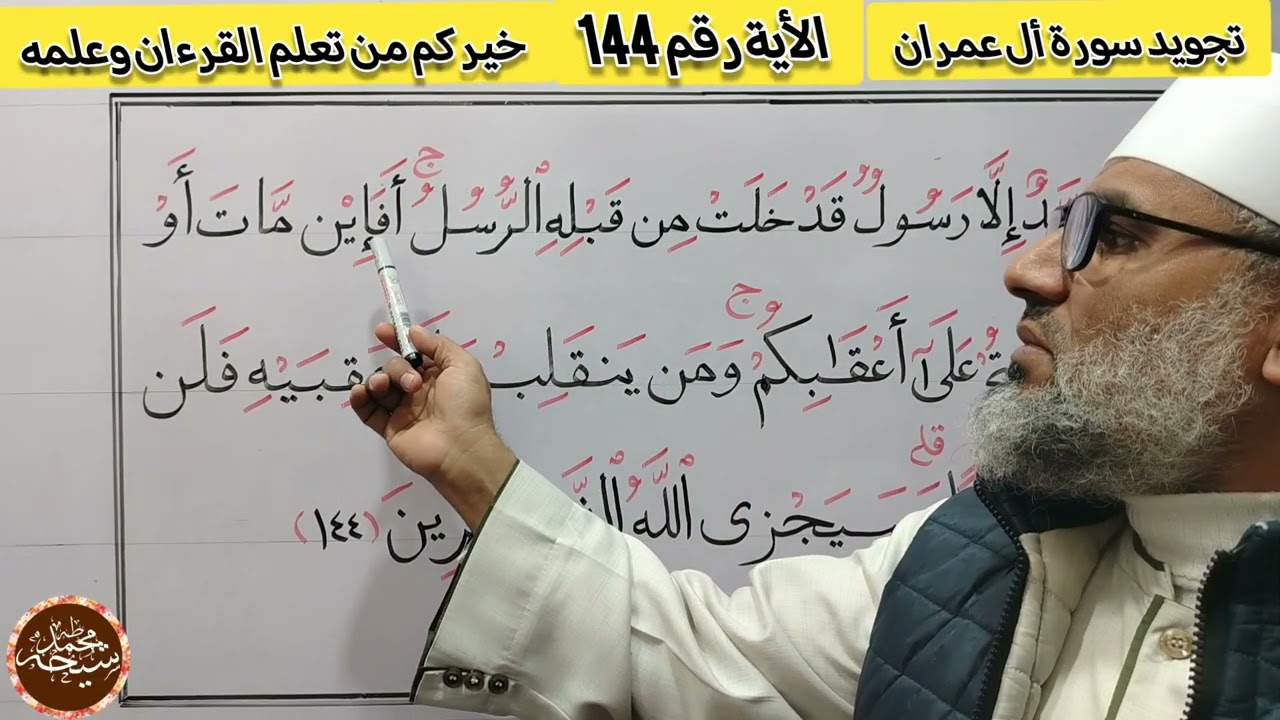 تجويد سورة أل عمران
الأية رقم 144
خيركم من تعلم القرءان وعلمه
إِلَّا رَسُولٌ قَدْ خَلَتْ مِن قَبْلِهِ ٱلرُّسُلُ ۚ أَفَإِيْن مَّاتَ أَوْ
عَلَىٰٓ أَعْقَٰبِكُمْ ۚ وَمَن يَنقَلِبْ عَقِبَيْهِ فَلَن
سَيَجْزِى ٱللَّهُ (١٤٤)
محمد طه شيحه